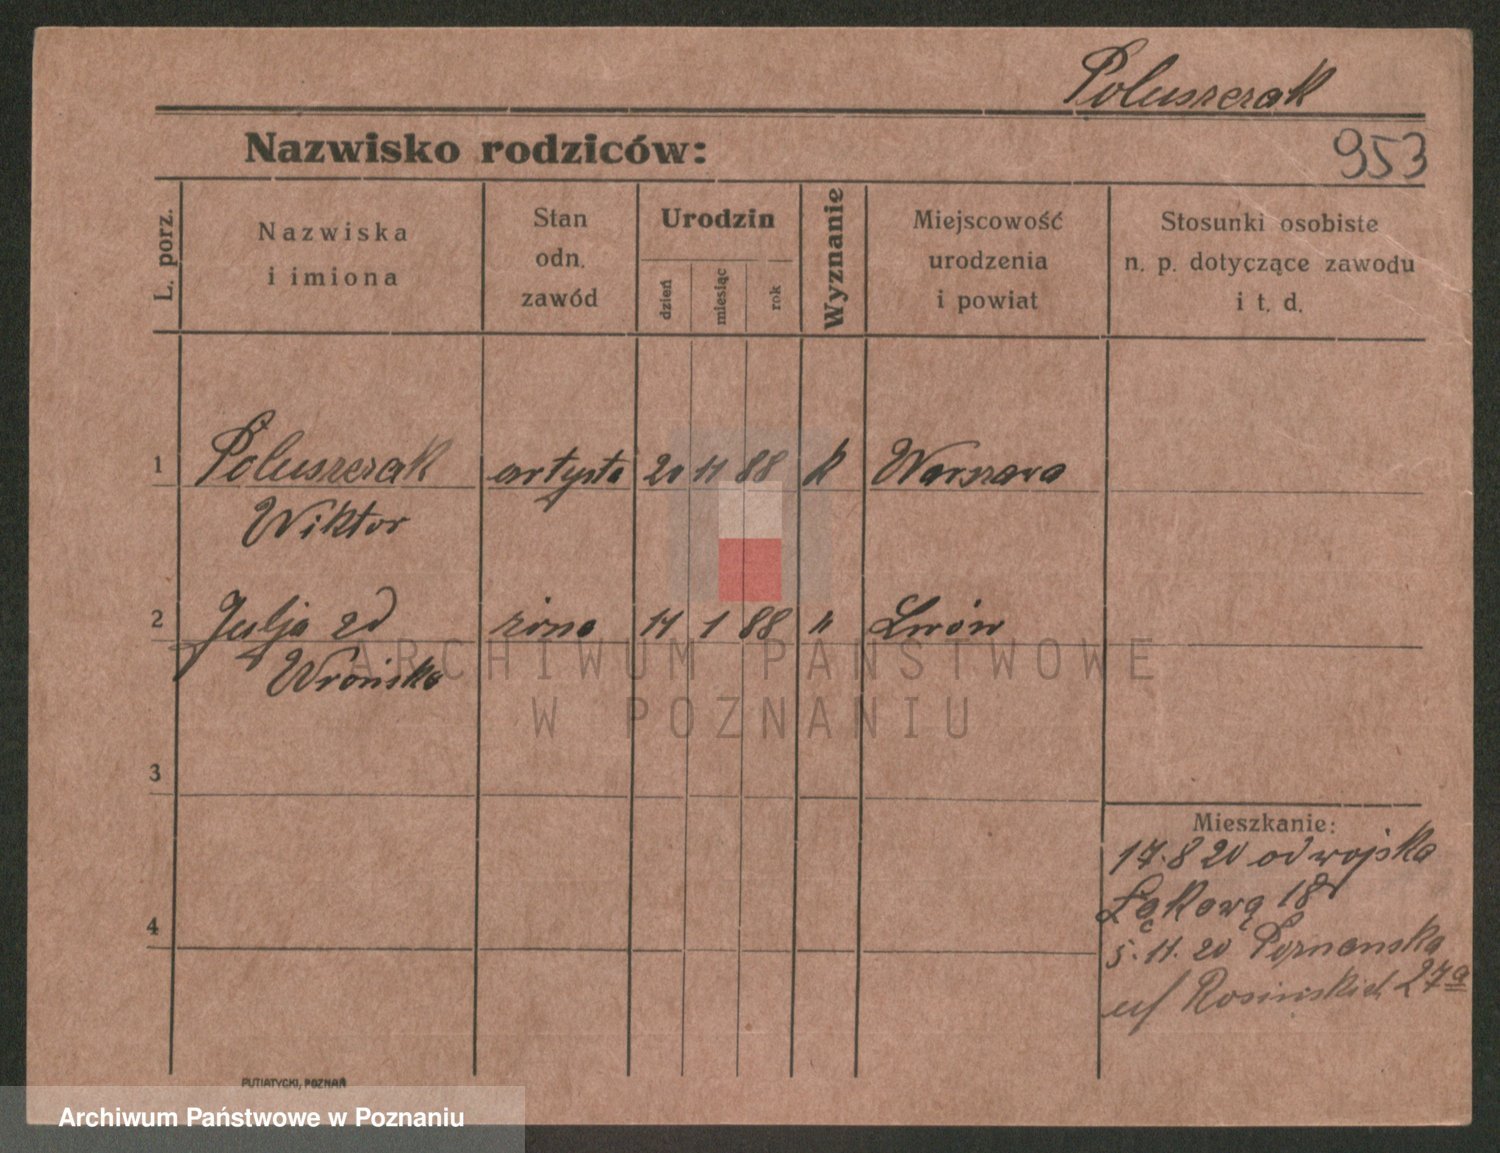 Poluszczak
Nazwisko rodziców:
953
L. porz.
Nazwiska
i imiona
Stan
odn.
zawód
Urodzin
dzień
miesiąc
rok
Wyznanie
Miejscowość
urodzenia
i powiat
Stosunki osobiste
n. p. dotyczące zawodu
i t. d.
1 Poluszczak artysta 20 11 88 k Warszawa
Wiktor
2 Julja zd żona 11 1 88 " Lwów
Wrońska
ARCHIWUM PAŃSTWOWE
W POZNANIU
3
4
Mieszkanie:
17.8 20 od wojska
Łąkową 18
5.11.20 Poznańska
u/ Rosińskich 27a
PUTIATYCKI, POZNAŃ
Archiwum Państwowe w Poznaniu